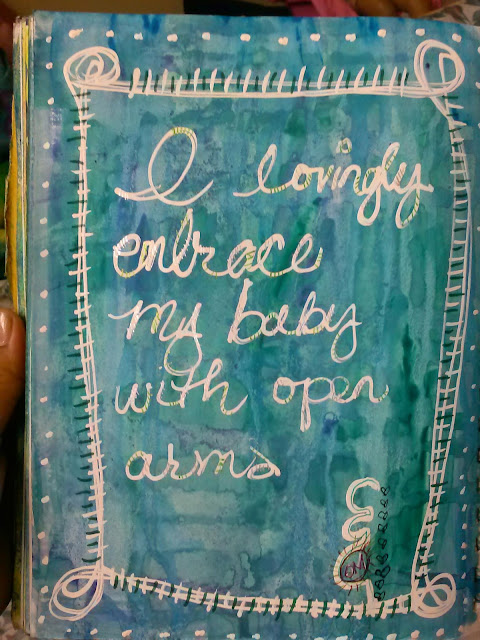 I lovingly
embrace
my baby
with open
arms